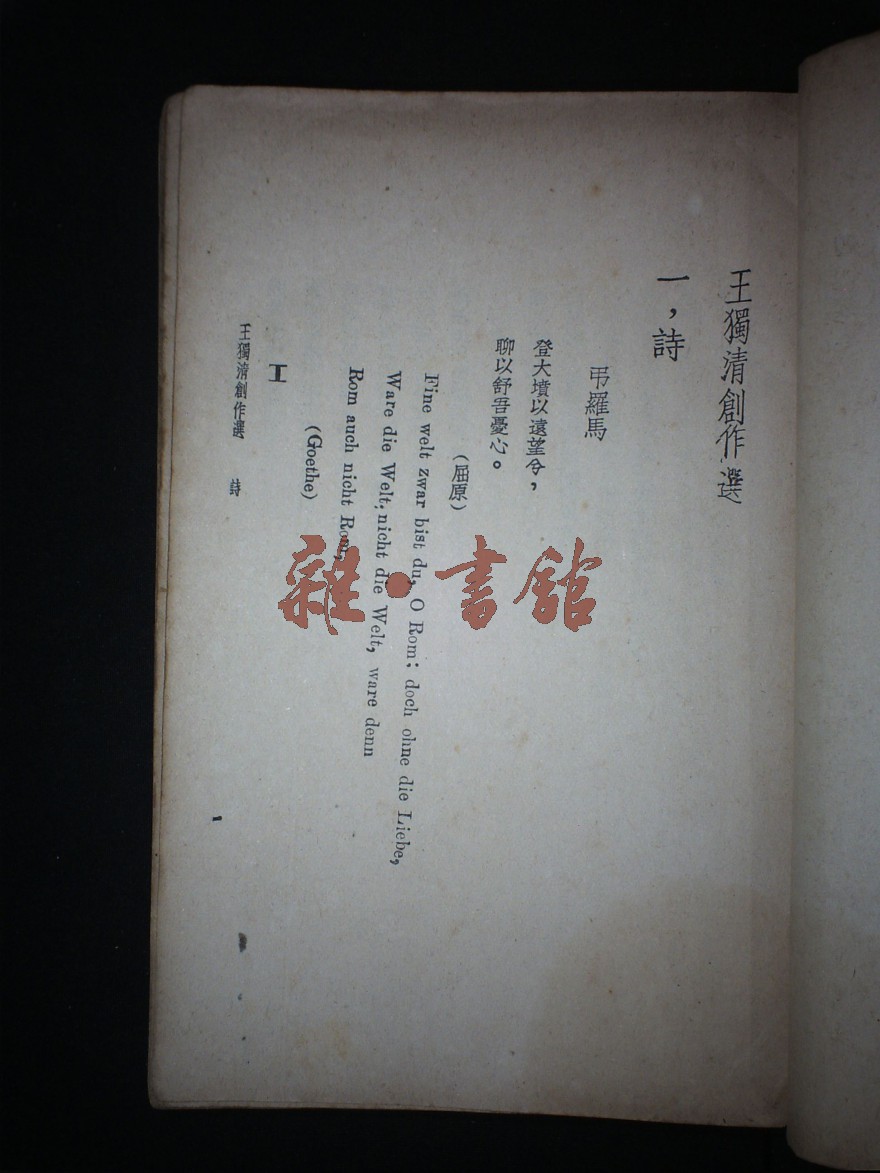 王獨清創作選
一，詩
弔羅馬
登大墳以遠望兮，
聊以舒吾憂心。
(屈原)
Fine welt zwar bist du, O Rom; doch ohne die Liebe,
Ware die Welt, nicht die Welt, ware denn
Rom auch nicht Rom,
(Goethe)
I
王獨清創作選 詩
1
雜·書館